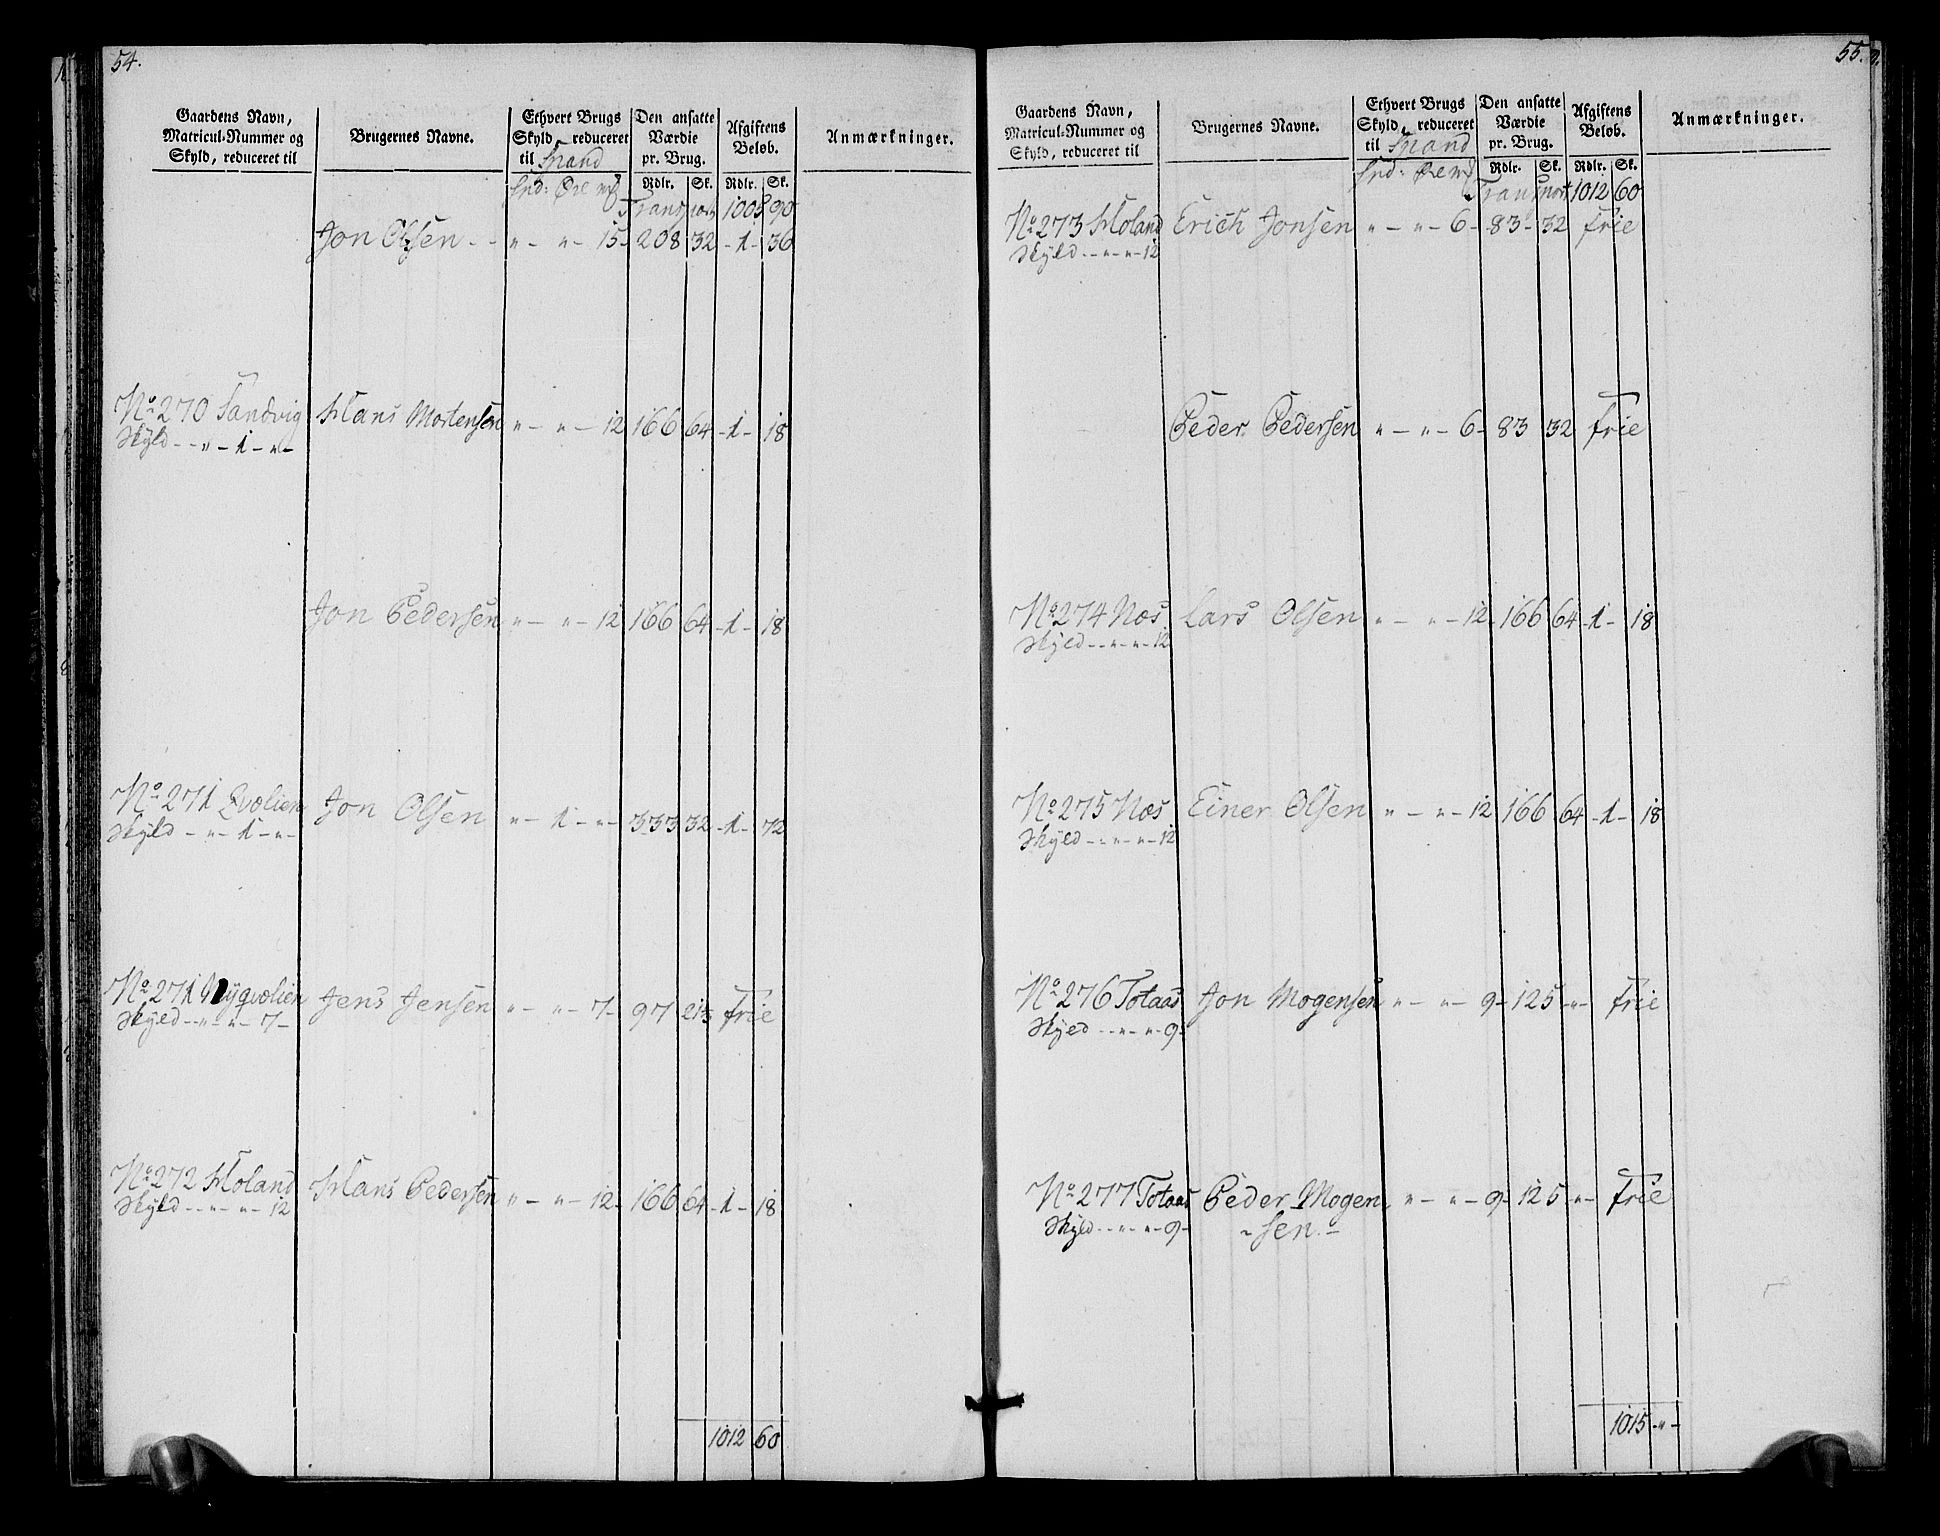 54.
Gaardens Navn,
Matricul-Nummer og
Skyld, reduceret til
Brugernes Navne.
Ethvert Brugs
Skyld, reduceret
til Spand
Spd: Øre mſ
Den ansatte
Værdie
pr. Brug.
Rdlr. Sk.
Afgiftens
Beløb.
Rdlr. Sk.
Anmærkninger.
Transport 1005 90
Jon Olsen - - „ - „ - 15 - 208 32 - 1 - 36
No 270 Sandvig Hans Mortensen „ - „ - 12 166 64 - 1 - 18
Skyld - - „ - 1 - „ -
Jon Pedersen „ - „ - 12 166 64 - 1 - 18
No 271 Qvolien Jon Olsen „ - 1 - „ - 333 32 - 1 - 72
Skyld - „ - 1 - „ -
No 271 Nyqvolien Jens Jensen „ - „ - 7 - 97 21⅓ frie
Skyld - - „ - „ - 7 -
No 272 Holand Hans Pedersen „ - „ - 12 - 166 64 - 1 - 18
Skyld - - „ - „ - 12
1012 60
55.
Gaardens Navn,
Matricul-Nummer og
Skyld, reduceret til
Brugernes Navne.
Ethvert Brugs
Skyld, reduceret
til Spand
Spd: Øre mſ
Den ansatte
Værdie
pr. Brug.
Rdlr. Sk.
Afgiftens
Beløb.
Rdlr. Sk.
Anmærkninger.
Transport 1012 60
No 273 Holand Erich Jonsen „ - „ - 6 - 83 - 32 frie
Skyld - - „ - „ - 12
Peder Pedersen „ - „ - 6 - 83 32 frie
No 274 Næs Lars Olsen „ - „ - 12 - 166 64 - 1 - 18
Skyld - - „ - „ - 12
No 275 Næs Einer Olsen „ - „ - 12 166 64 - 1 - 18
Skyld - - „ - „ - 12
No 276 Totaas Jon Mogensen „ - „ - 9 - 125 - „ - frie
Skyld - - „ - „ - 9 -
No 277 Totaas Peder Mogen „ - „ - 9 - 125 - „ - frie
Skyld - - „ - „ - 9 - - sen. -
1015 - „ -